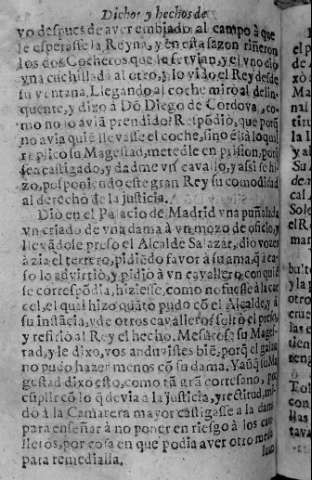 Dichos y hechos de
vo despues de aver embiado al campo à que
le esperasse la Reyna, y en esta sazon riñeron
los dos Cocheros que le servian, y el vno dio
vna cuchillada al otro, y lo vido el Rey desde
su ventana. Llegando al coche miró al delin-
quente, y dixo à Dõ Diego de Cordova, co-
mo no lo aviã prendido? Respõdio, que porq̃
no avia quiẽ llevasse el coche, sino era lo qual
replicó su Magestad, metedle en prision, porq̃
sea castigado, y dadme vn cavallo, y assi se hi-
zo, posponiendo este gran Rey su comodidad
al derecho de la justicia.
Dio en el Palacio de Madrid vna puñalada
vn criado de vna dama à vn mozo de oficio, y
llevãdose preso el Alcalde Salazar, dio vozes
àzia el terrero, pidiẽdo favor à su ama, q̃ a ca-
so lo advirtiò, y pidiò à vn cavallero, con quiẽ
se correspõdia, hiziesse, como no fuesse à la car
cel, el qual hizo quãto pudo cõ el Alcalde, y à
su instãcia, y de otros cavalleros soltò el preso,
y refiriò al Rey el hecho. Mesuròse su Mages-
tad, y le dixo, vos anduvistes biẽ, porq̃ el galan
no pudo hazer menos cõ su dama. Y aũq̃ su Ma
gestad dixo esto, como tã grã cortesano, por
cũplir cõ lo q̃ devia a la justicia, y rectitud, mã-
dò à la Camarera mayor castigasse a la dama
para enseñar à no poner en riesgo à los cava-
lleros, por cosa en que podia aver otro medio
para remedialla.